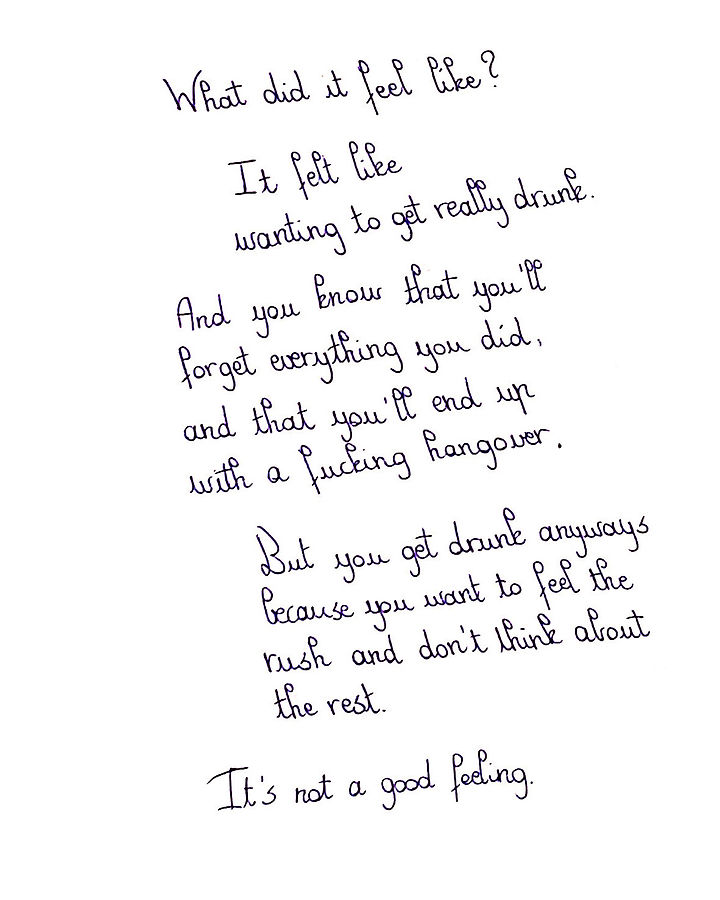 What did it feel like?
It felt like
wanting to get really drunk.
And you know that you'll
forget everything you did,
and that you'll end up
with a fucking hangover.
But you get drunk anyways
because you want to feel the
rush and don't think about
the rest.
It's not a good feeling.